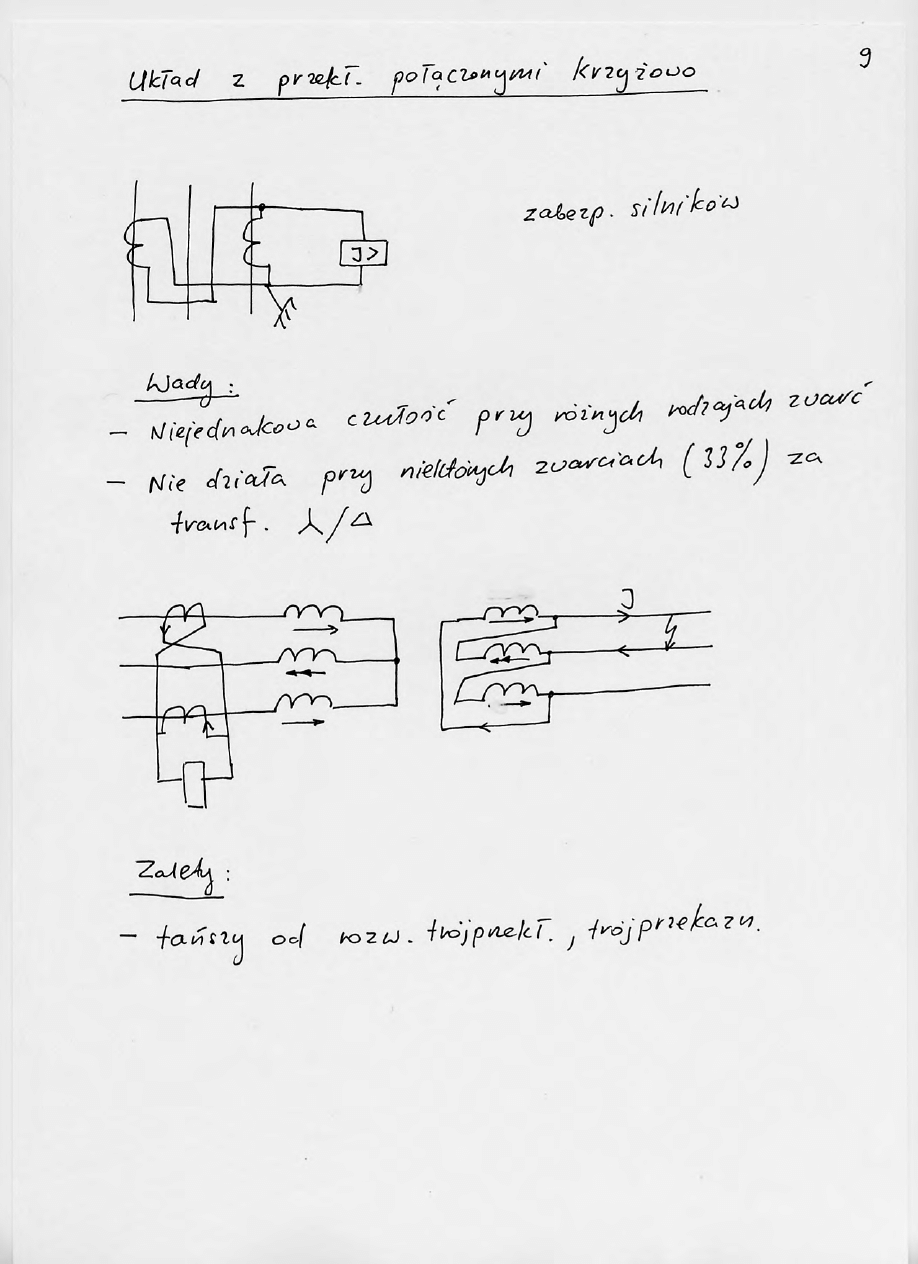 9
Układ z przekł. połączonymi krzyżowo
zabezp. silników
I>
Wady:
– Niejednakowa czułość przy różnych rodzajach zwarć
– Nie działa przy niektórych zwarciach (33%) za
transf. ⅄/Δ
I
Zalety:
– tańszy od rozw. trójprzekł., trójprzekaźn.